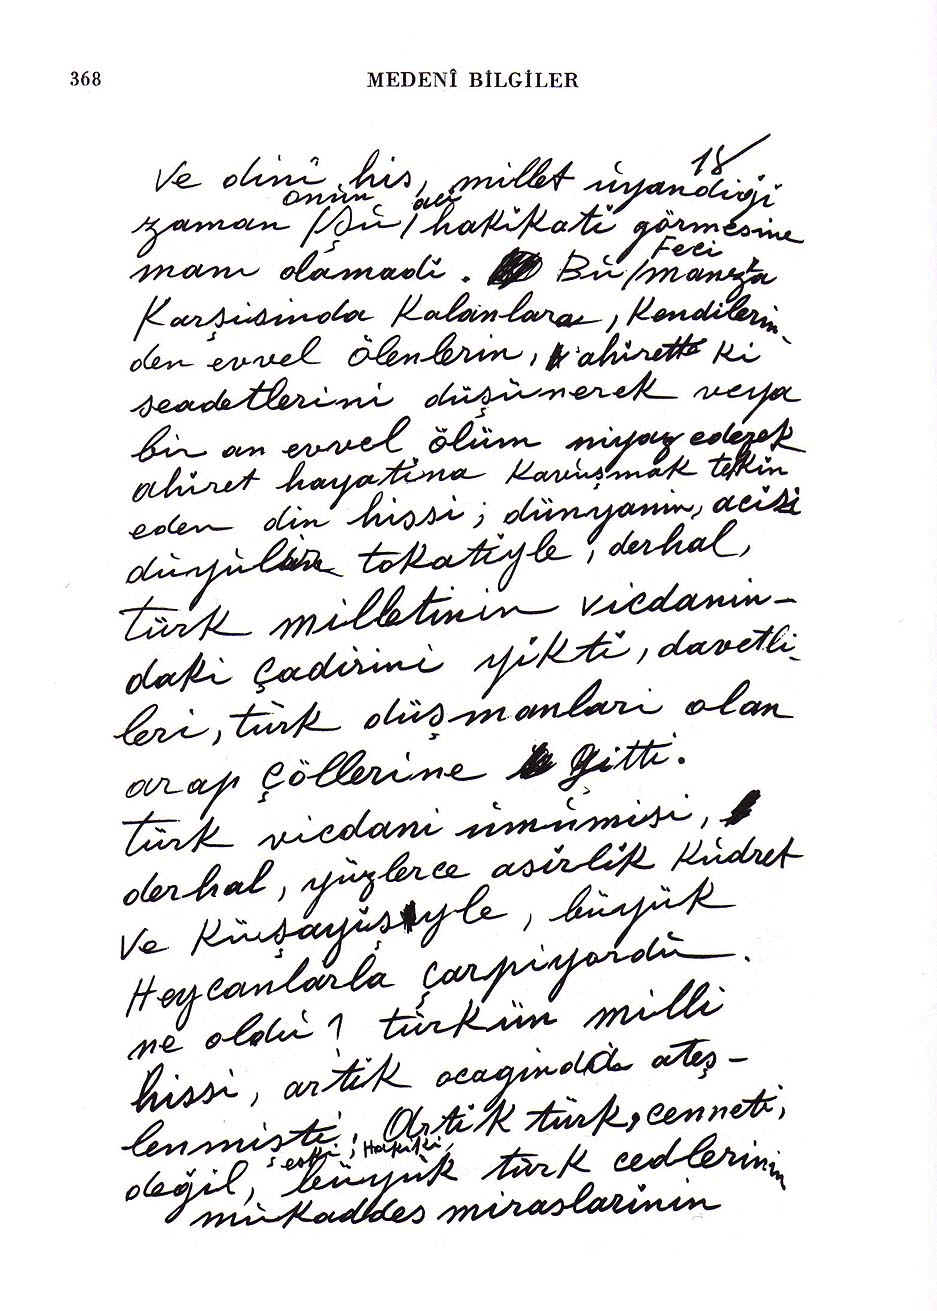 368
MEDENÎ BİLGİLER
18
Ve dinî his, millet uyandığı
onun acı
zaman (şu) hakikati görmesine
Feci
mani olamadı. Bu manzara
karşısında kalanlara, kendilerin-
den evvel ölenlerin, ahiretteki
seadetlerini düşünerek veya
bir an evvel ölüm niyaz ederek
ahiret hayatına kavuşmak telkin
eden din hissi; dünyanın, acısı
duyulan tokatiyle, derhal,
türk milletinin vicdanın-
daki çadırını yıktı, davetli-
leri, türk düşmanları olan
arap çöllerine gitti.
türk vicdanı umumisi,
derhal, yüzlerce asırlık kudret
ve küşayişiyle, büyük
Heycanlarla çarpıyordu.
ne oldu? türkün milli
hissi, artık ocağında ateş-
lenmişti. Artık türk, cenneti,
eski, Hakiki,
değil, büyük türk cedlerinin
mukaddes miraslarının